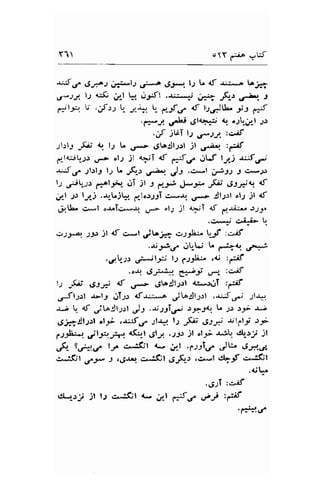 کتاب هفتم ۵۲۳ ۳۶۱
چیزها هستند که ما را بسوی هستی راستین رهبری می‌کنند
و بعضی دیگر چنین نیستند. اکنون بیا این نکته را بررسی
کنیم و تو مطالبی‌را که می‌گویم یا بپذیر یا ردکن، تا بتوانیم
در این‌باره به نتیجه‌ای قطعی برسیم.
گفت: بررسی را آغاز کن.
گفتم: بعضی از ادراکهای حسی ما را به تفکر وادار
نمی‌کنند زیرا گمان می‌کنیم که آنچه از راه حس دریافته‌ایم
درست و روشن است. ولی بعضی دیگر ما را وادار می‌کنند
که به‌نیروی تفکر متوسل شویم و از آن بخواهیم دریافتی را
که از راه ادراک حسی بدست آورده‌ایم بیازماید. زیرا در این
مورد معتقدیم که آنچه از راه حس بدست‌آمده است مطابق
با حقیقت نیست.
گفت: گویا منظورت چیزهائی است که از دور بصورت
شبحی به‌چشم ما نمایان می‌شوند.
گفتم: نه، منظورم را نتوانستی دریابی.
گفت: پس توضیح بیشتری بده.
گفتم: آن‌دسته ادراکهای حسی که نیروی تفکر را
بیدار نمی‌کنند، ادراکهائی هستندکه درآن واحد ادراکی
ضد خود در ما به‌وجود نمی‌آورند. ولی ادراکهائی که با ضد
خود توام‌اند نیروی تفکر را بیدار می‌کنند، خواه ادراک‌چیزی
از نزدیک باشد خواه از دور. برای اینکه بهتربتوانی بمنظورم
پی‌ببری مثالی می‌آورم. این سه انگشت مرا می‌بینی؟ یکی
انگشت کوچک است، دیگری انگشت بعدی، و سومی انگشت
میانه.
گفت: آری.
گفتم: فرض می‌کنیم این سه انگشت را از نزدیک
می‌بینیم.